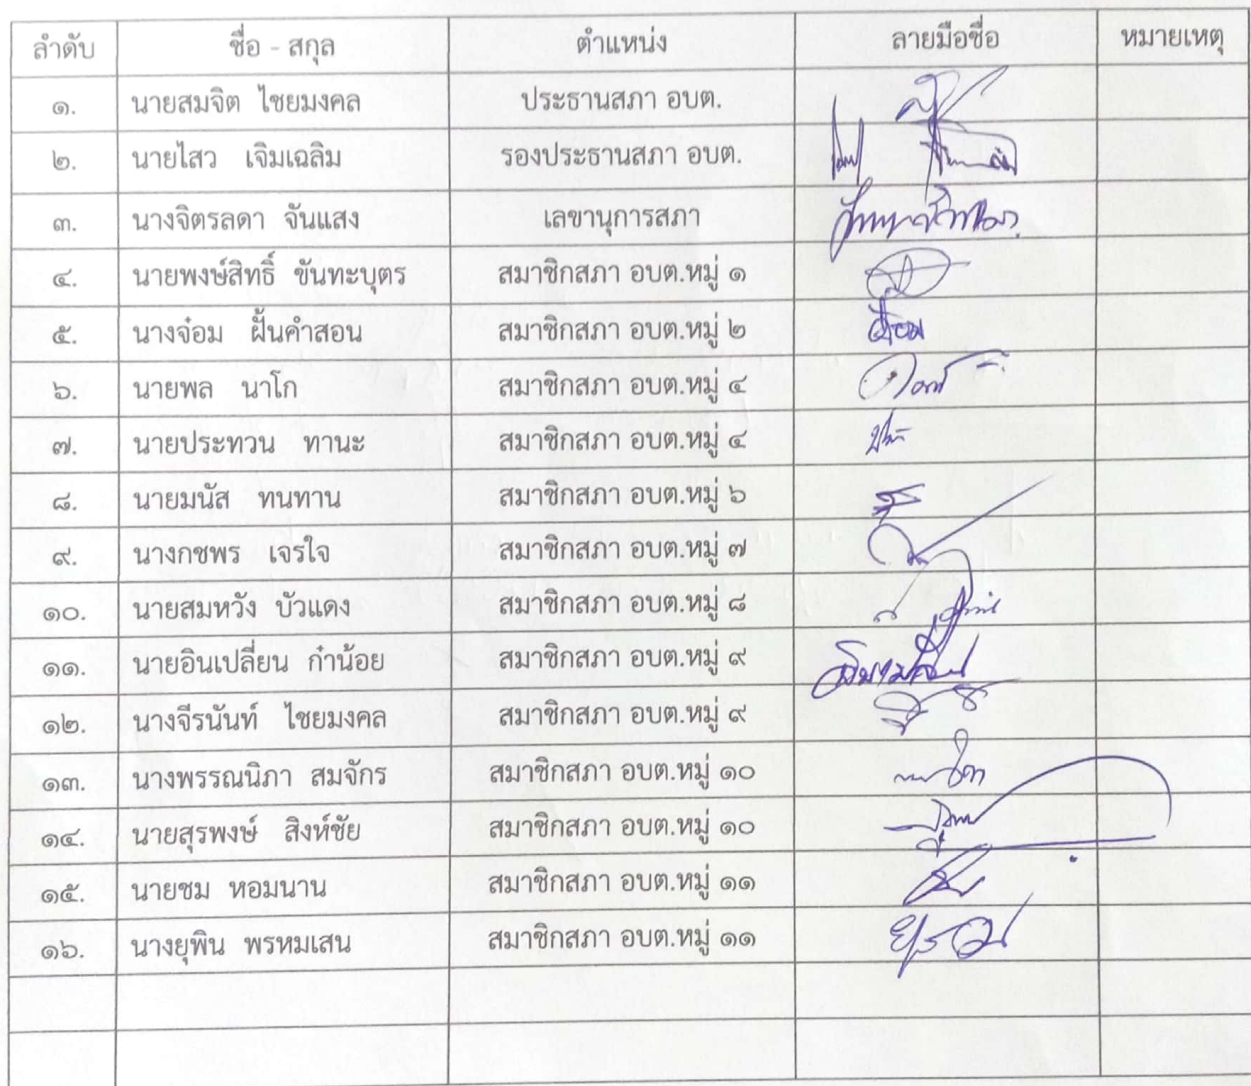 ลำดับ ชื่อ - สกุล ตำแหน่ง ลายมือชื่อ หมายเหตุ
๑. นายสมจิต ไชยมงคล ประธานสภา อบต.
๒. นายไสว เจิมเฉลิม รองประธานสภา อบต.
๓. นางจิตรลดา จันแสง เลขานุการสภา
๔. นายพงษ์สิทธิ์ ขันทะบุตร สมาชิกสภา อบต.หมู่ ๑
๕. นางจ๋อม ฝั้นคำสอน สมาชิกสภา อบต.หมู่ ๒
๖. นายพล นาโก สมาชิกสภา อบต.หมู่ ๔
๗. นายประทวน ทานะ สมาชิกสภา อบต.หมู่ ๔
๘. นายมนัส ทนทาน สมาชิกสภา อบต.หมู่ ๖
๙. นางกชพร เจรใจ สมาชิกสภา อบต.หมู่ ๗
๑๐. นายสมหวัง บัวแดง สมาชิกสภา อบต.หมู่ ๘
๑๑. นายอินเปลี่ยน ก๋าน้อย สมาชิกสภา อบต.หมู่ ๙
๑๒. นางจีรนันท์ ไชยมงคล สมาชิกสภา อบต.หมู่ ๙
๑๓. นางพรรณนิภา สมจักร สมาชิกสภา อบต.หมู่ ๑๐
๑๔. นายสุรพงษ์ สิงห์ชัย สมาชิกสภา อบต.หมู่ ๑๐
๑๕. นายชม หอมนาน สมาชิกสภา อบต.หมู่ ๑๑
๑๖. นางยุพิน พรหมเสน สมาชิกสภา อบต.หมู่ ๑๑